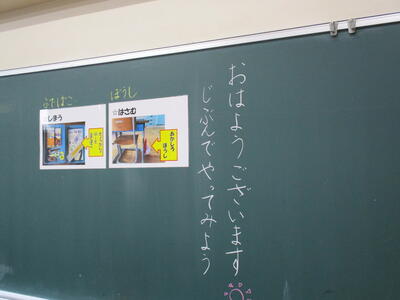 おはようございます
じぶんでやってみよう
ぼうし
☆はさむ
あかしろ
ぼうし
しまう